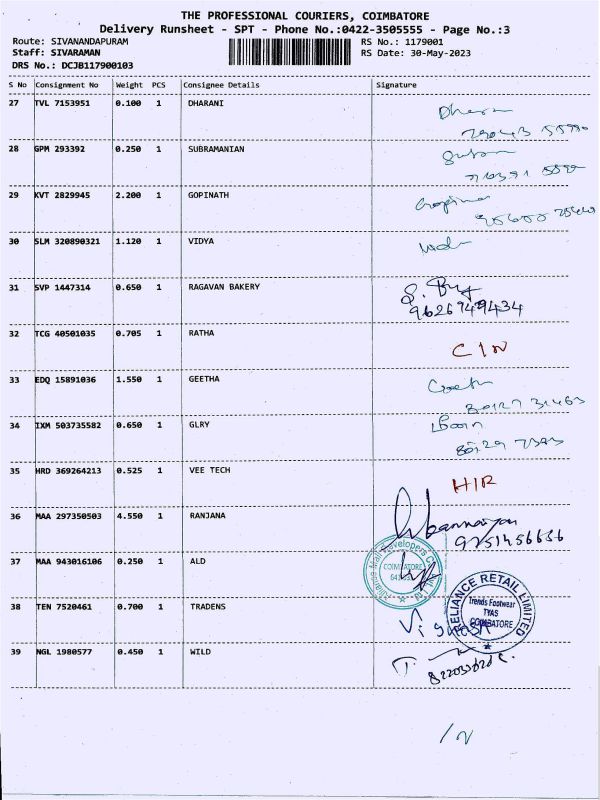 THE PROFESSIONAL COURIERS, COIMBATORE
Delivery Runsheet - SPT - Phone No.:0422-3505555 - Page No.:3
Route: SIVANANDAPURAM RS No.: 1179001
Staff: SIVARAMAN RS Date: 30-May-2023
DRS No.: DCJB117900103
S No Consignment No Weight PCS Consignee Details Signature
27 TVL 7153951 0.100 1 DHARANI
28 GPM 293392 0.250 1 SUBRAMANIAN
29 KVT 2829945 2.200 1 GOPINATH
30 SLM 320890321 1.120 1 VIDYA
31 SVP 1447314 0.650 1 RAGAVAN BAKERY
32 TCG 40501035 0.705 1 RATHA
C/N
33 EDQ 15891036 1.550 1 GEETHA
34 IXM 503735582 0.650 1 GLRY
35 HRD 369264213 0.525 1 VEE TECH
H/R
36 MAA 297350503 4.550 1 RANJANA
9751456636
37 MAA 943016106 0.250 1 ALD
COIMBATORE
38 TEN 7520461 0.700 1 TRADENS
RELIANCE RETAIL LIMITED
Trends Footwear
TYAS
COIMBATORE
39 NGL 1980577 0.450 1 WILD